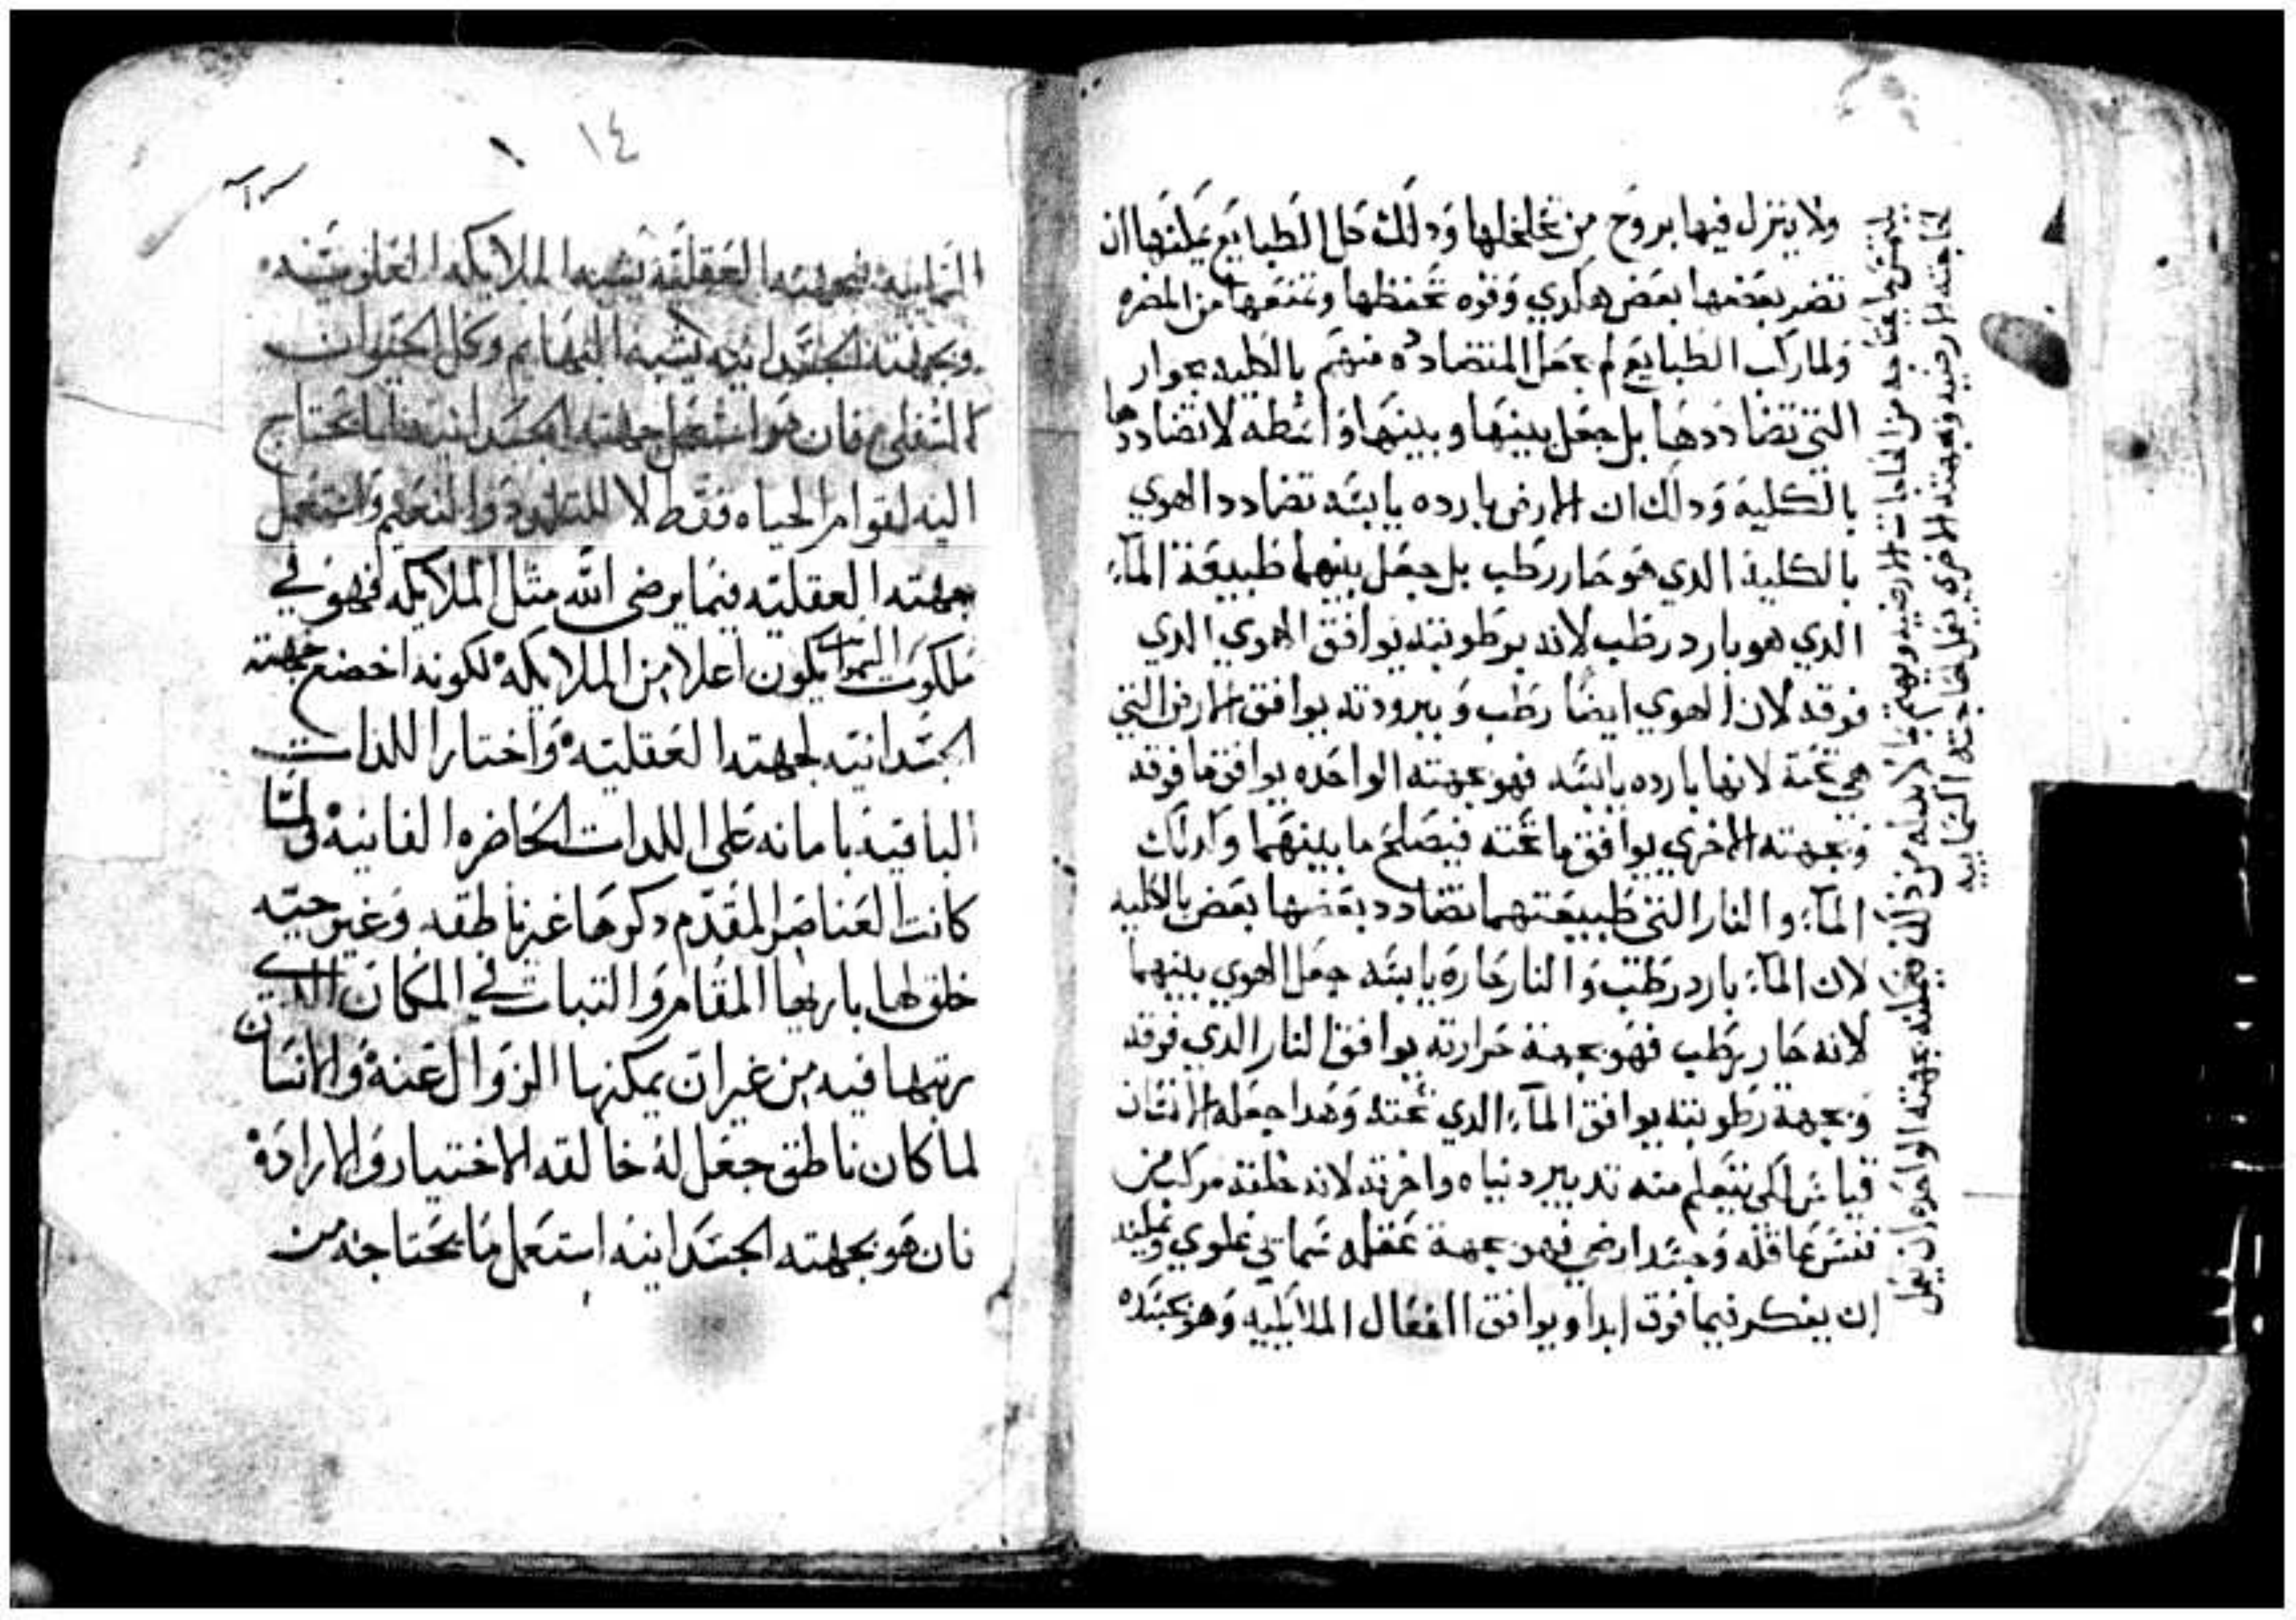 ولا ينزل فيها بروح من تخلخلها وذلك كل الطبايع يمكنها ان
تضر بعضها بعض هكدي وقوه تحفظها وتمنعها من المضره
ولما ركب الطبايع لم يجعل المتضاده منهم بالكليه بجوار
التي تضاددها بل جعل بينها وبينها واسطه لا تضاددها
بالكلية ودلك ان الارض بارده يابسه تضادد الهوي
بالكلية الدي هو حار رطب بل جعل بينهما طبيعة المآء
الدي هو بارد رطب لانه برطوبته يوافق الهوي الدي
فوقه لان الهوي ايضا رطب وببرودته يوافق الارض التي
هي تحته لانها بارده يابسه فهو بجهته الواحده يوافق ما فوقه
وبجهته الاخري يوافق ما تحته فيصلح ما بينهما وكدلك
المآء والنار التي طبيعتهما تضادد بعضها بعض بالكليه
لان المآء بارد رطب والنار حاره يابسه جعل الهوي بينهما
لانه حار رطب فهو بجهة حرارته يوافق النار الدي فوقه
وبجهة رطوبته يوافق المآء الدي تحته وهدا جعله الانسان
قياس لكي يتعلم منه تدبير دنياه واخرته لانه خلقه مركب من
نفس عاقله وجسد ارضي فهو بجهة عقله سماني علوي ويمكنه
ان يفكر فيما فوق ابدا ويوافق افعال الملايكيه وهو بجسده
يلتمس ما يحتاجه من الحاجات الارضيه ويهتم بما لا بد له من دلك فيمكنه بجهته الواحده ان يعمل
لحاجته الارضيه وبجهته الاخري يعمل لحاجته السماييه
١٤
السمايية فبجهته العقلية يشبه الملايكه العلوية
وبجهته الجسدانيه يشبه البهايم وكل الحيوان
السفلي فان هو استعمل جهته الجسدانيه فيما يحتاج
اليه لقوام الحياه فقط لا للتلدد والتنعيم واستعمل
جهته العقليه فيما يرضي الله مثل الملايكه فهو في
ملكوت السموات يكون اعلا من الملايكه لكونه اخضع جهته
الجسدانيه لجهته العقليه واختار اللدات
الباقيه بامانه علي اللدات الحاضره الفانيه ولما
كانت العناصر المقدم دكرها غير ناطقه وغير حيه
خلق لها باريها المقام والثبات في المكان الدي
رتبها فيه من غير ان يمكنها الزوال عنه والانسان
لما كان ناطق جعل له خالقه الاختيار والاراده
فان هو بجهته الجسدانيه استعمل ما يحتاجه من